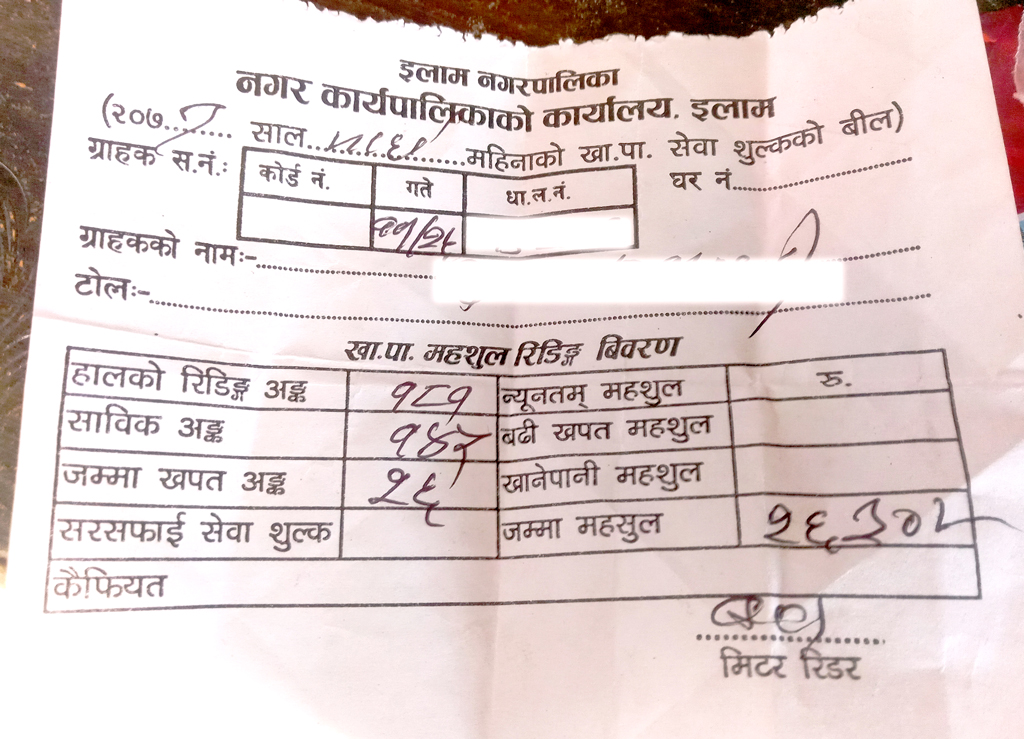 इलाम नगरपालिका
नगर कार्यपालिकाको कार्यालय, इलाम
(२०७........ साल....................महिनाको खा.पा. सेवा शुल्कको बील)
ग्राहक स.नं.:
कोर्ड नं. गते धा.ल.नं.
घर नं.........................
ग्राहकको नामः-
टोलः-
खा.पा. महशुल रिडिङ्ग बिवरण
हालको रिडिङ्ग अङ्क १८१ न्यूनतम् महशुल रु.
साविक अङ्क बढी खपत महशुल
जम्मा खपत अङ्क २६ खानेपानी महशुल
सरसफाई सेवा शुल्क जम्मा महसुल
कैफियत
मिटर रिडर